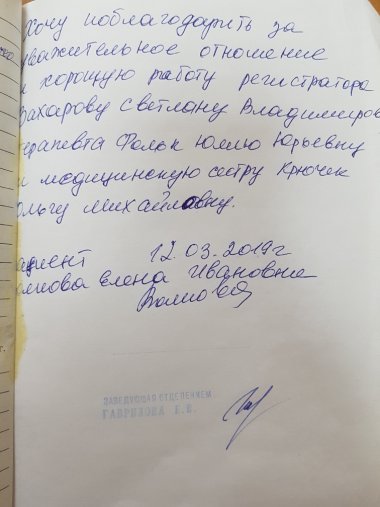 Хочу поблагодарить за
уважительное отношение
и хорошую работу регистратора
Захарову Светлану Владимиров
терапевта Фольк Юлию Юрьевну
и медицинскую сестру Крючек
Ольгу Михайловну.
ациент 12.03.2019г
Елена Ивановне
ЗАВЕДУЮЩАЯ ОТДЕЛЕНИЕМ
ГАВРИЛОВА Е.В.